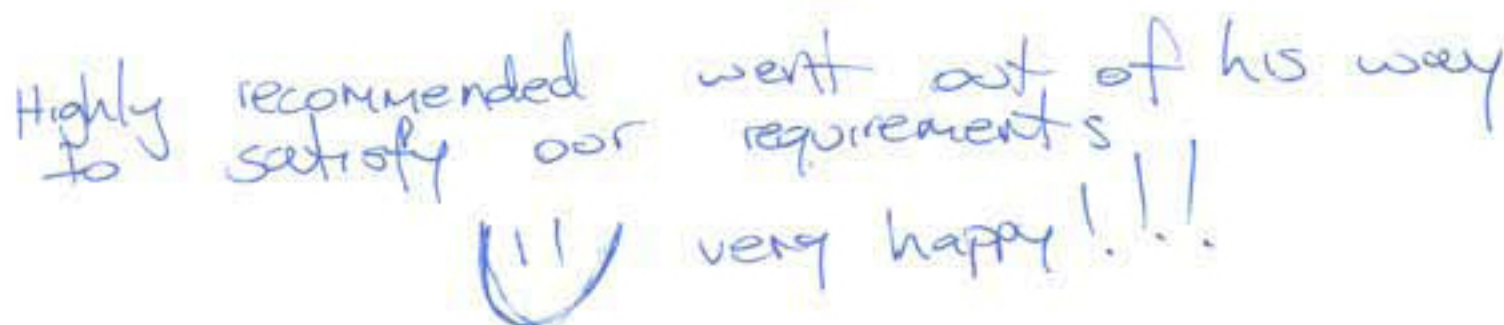 Highly recommended went out of his way
to satisfy our requirements
very happy!!!